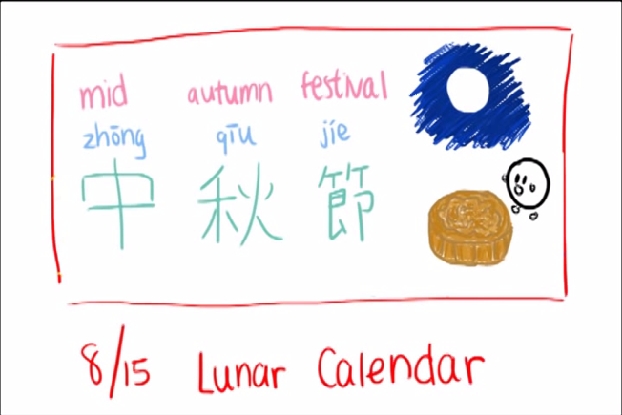 mid autumn festival
zhōng qīu jíe
中 秋 節
8/15 Lunar Calendar